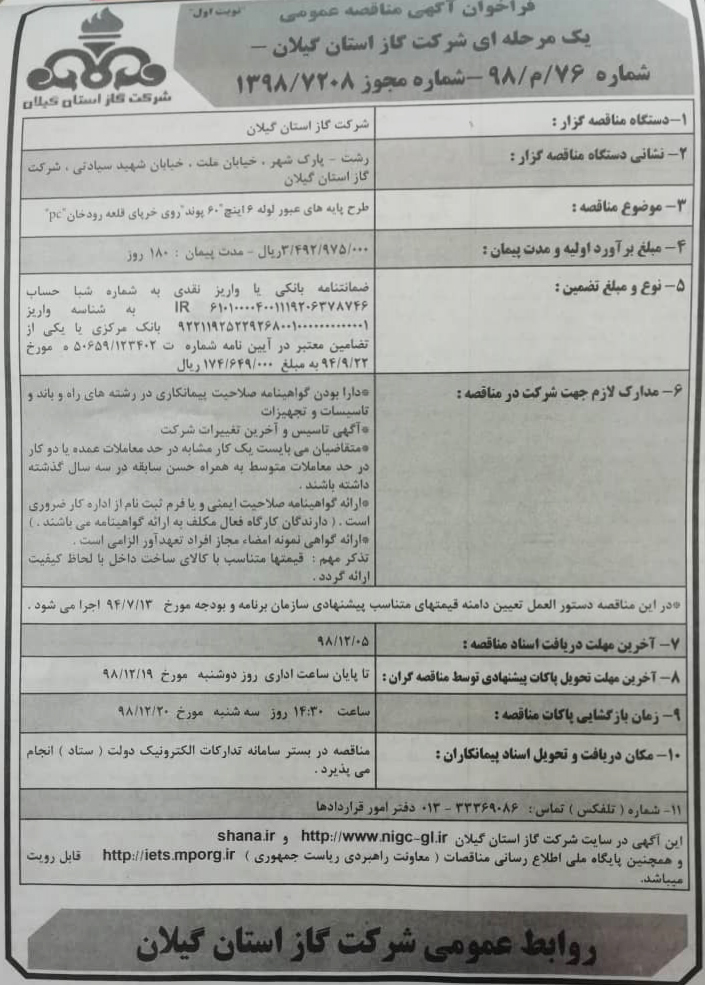 فراخوان آگهی مناقصه عمومی "نوبت اول"
یک مرحله ای شرکت گاز استان گیلان –
شماره ۷۶/م/۹۸ – شماره مجوز ۱۳۹۸/۷۲۰۸
شرکت گاز استان گیلان
۱- دستگاه مناقصه گزار :
شرکت گاز استان گیلان
۲- نشانی دستگاه مناقصه گزار :
رشت – پارک شهر ، خیابان ملت ، خیابان شهید سیادتی ، شرکت
گاز استان گیلان
۳- موضوع مناقصه :
طرح پایه های عبور لوله ۶ اینچ"۶۰ پوند"روی خرپای قلعه رودخان"pc"
۴- مبلغ برآورد اولیه و مدت پیمان :
۳/۴۹۲/۹۷۵/۰۰۰ریال – مدت پیمان : ۱۸۰ روز
۵- نوع و مبلغ تضمین :
ضمانتنامه بانکی یا واریز نقدی به شماره شبا حساب
IR ۶۱۰۱۰۰۰۰۴۰۰۱۱۱۹۲۰۶۳۷۸۷۴۶ به شناسه واریز
۹۲۲۱۱۹۲۵۲۲۹۲۶۸۰۰۱۰۰۰۰۰۰۰۰۰۰۰۰۱ بانک مرکزی یا یکی از
تضامین معتبر در آیین نامه شماره ت ۵۰۶۵۹/۱۲۳۴۰۲ ه مورخ
۹۴/۹/۲۲ به مبلغ ۱۷۴/۶۴۹/۰۰۰ ریال
۶- مدارک لازم جهت شرکت در مناقصه :
*دارا بودن گواهینامه صلاحیت پیمانکاری در رشته های راه و باند و
تاسیسات و تجهیزات
*آگهی تاسیس و آخرین تغییرات شرکت
*متقاضیان می بایست یک کار مشابه در حد معاملات عمده یا دو کار
در حد معاملات متوسط به همراه حسن سابقه در سه سال گذشته
داشته باشند .
*ارائه گواهینامه صلاحیت ایمنی و یا فرم ثبت نام از اداره کار ضروری
است . ( دارندگان کارگاه فعال مکلف به ارائه گواهینامه می باشند . )
*ارائه گواهی نمونه امضاء مجاز افراد تعهدآور الزامی است .
تذکر مهم : قیمتها متناسب با کالای ساخت داخل با لحاظ کیفیت
ارائه گردد .
*در این مناقصه دستور العمل تعیین دامنه قیمتهای متناسب پیشنهادی سازمان برنامه و بودجه مورخ ۹۴/۷/۱۳ اجرا می شود .
۷- آخرین مهلت دریافت اسناد مناقصه :
۹۸/۱۲/۰۵
۸- آخرین مهلت تحویل پاکات پیشنهادی توسط مناقصه گران :
تا پایان ساعت اداری روز دوشنبه مورخ ۹۸/۱۲/۱۹
۹- زمان بازگشایی پاکات مناقصه :
ساعت ۱۴:۳۰ روز سه شنبه مورخ ۹۸/۱۲/۲۰
۱۰- مکان دریافت و تحویل اسناد پیمانکاران :
مناقصه در بستر سامانه تدارکات الکترونیک دولت ( ستاد ) انجام
می پذیرد .
۱۱- شماره ( تلفکس ) تماس : ۳۳۳۶۹۰۸۶ – ۰۱۳ دفتر امور قراردادها
این آگهی در سایت شرکت گاز استان گیلان http://www.nigc-gl.ir و shana.ir
و همچنین پایگاه ملی اطلاع رسانی مناقصات ( معاونت راهبردی ریاست جمهوری ) http://iets.mporg.ir قابل رویت
میباشد.
روابط عمومی شرکت گاز استان گیلان